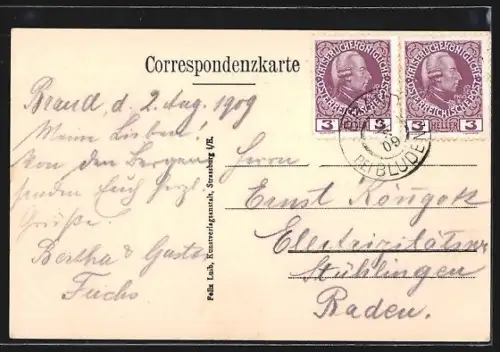 Correspondenzkarte
Brand, d. 2 Aug. 1909
Meine Lieben!
Von den Bergen
senden Euch herzl.
Grüße.
Bertha & Gustav
Fuchs
Felix Luib, Kunstverlagsanstalt, Strassburg i/E.
KAISERLICHE KÖNIGLICHE
ÖSTERREICHISCHE POST
3 HELLER 3
KAISERLICHE KÖNIGLICHE
ÖSTERREICHISCHE POST
3 HELLER 3
09
BEI BLUDEN
Herrn
Ernst
Electrizitätsw
Stühlingen
Baden.